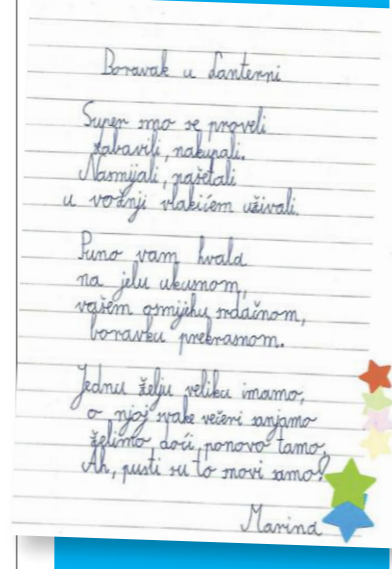 Boravak u Lanterni
Super smo se proveli
zabavili, nakupali.
Nasmijali, prošetali
u vožnji vlakićem uživali.
Puno vam hvala
na jelu ukusnom,
vašem osmijehu srdačnom,
boravku prekrasnom.
Jednu želju veliku imamo,
o njoj svake večeri sanjamo
želimo doći ponovo tamo,
Ah, pusti su to snovi samo?
Marina